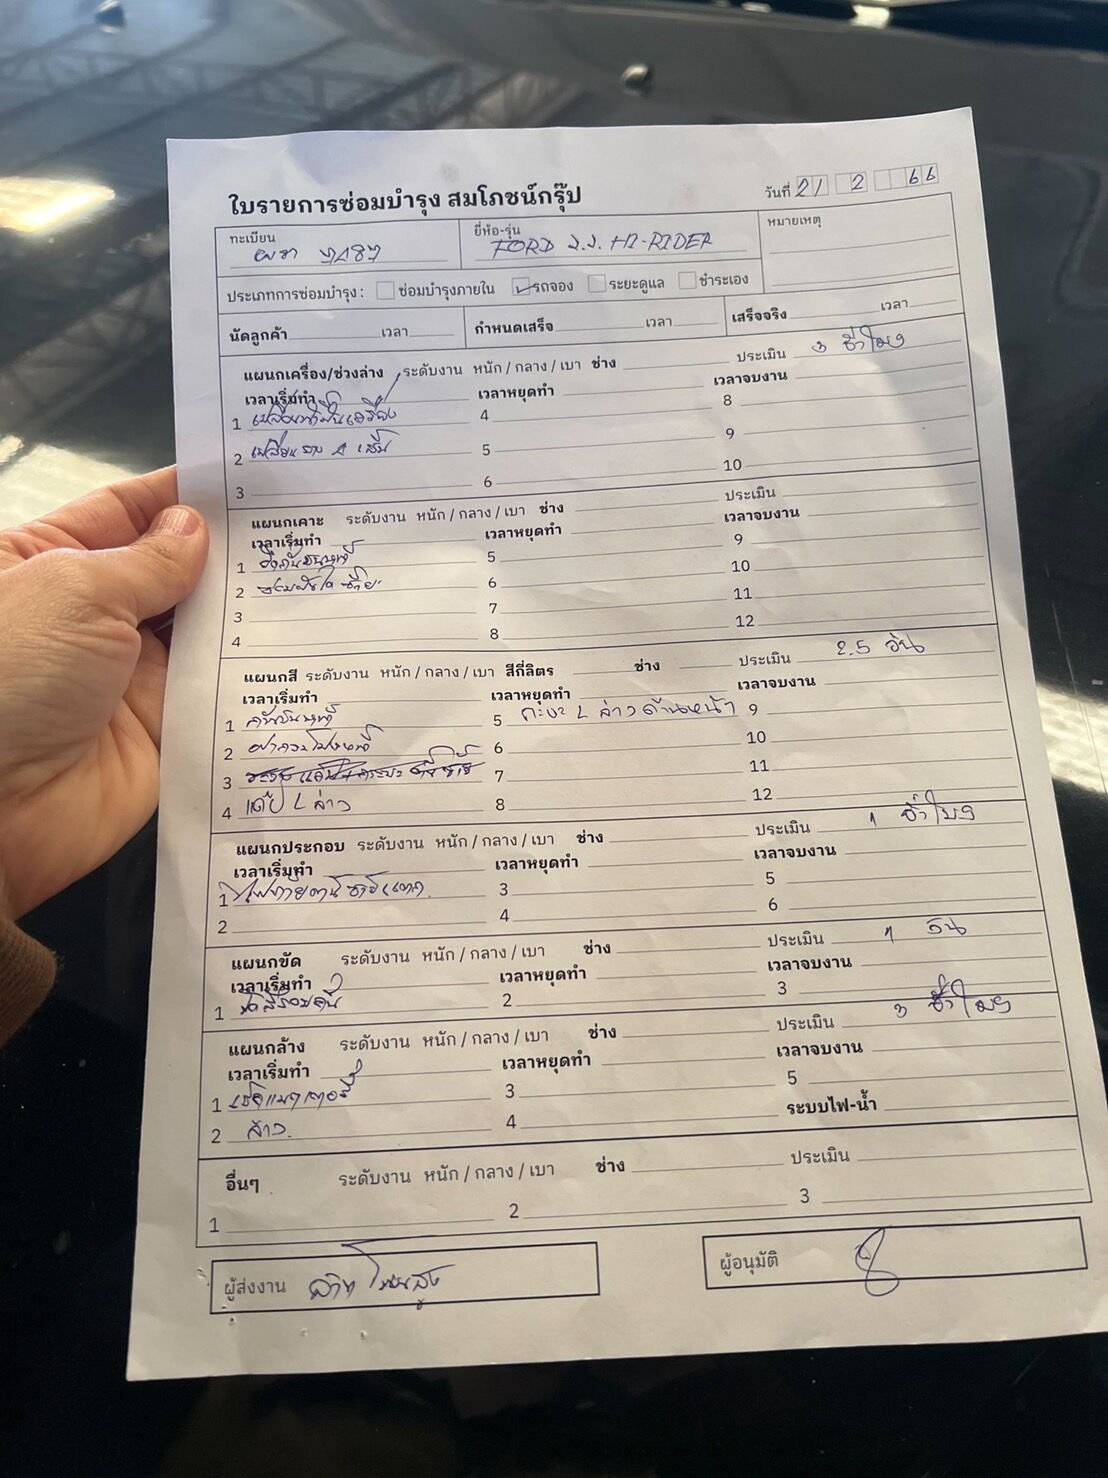 ใบรายการซ่อมบำรุง สมโภชน์กรุ๊ป
วันที่ 21 2 66
ทะเบียน
ยี่ห้อ-รุ่น FORD HI-RIDER
หมายเหตุ
ประเภทการซ่อมบำรุง : ซ่อมบำรุงภายใน รถจอง ระยะดูแล ชำระเอง
นัดลูกค้า เวลา กำหนดเสร็จ เวลา เสร็จจริง เวลา
แผนกเครื่อง/ช่วงล่าง ระดับงาน หนัก / กลาง / เบา ช่าง ประเมิน 3 ชั่วโมง
เวลาเริ่มทำ เวลาหยุดทำ เวลาจบงาน
1 เปลี่ยนน้ำมันเครื่อง 4 8
2 เปลี่ยนยาง 4 เส้น 5 9
3 6 10
แผนกเคาะ ระดับงาน หนัก / กลาง / เบา ช่าง ประเมิน
เวลาเริ่มทำ เวลาหยุดทำ เวลาจบงาน
1 5 9
2 6 10
3 7 11
4 8 12
แผนกสี ระดับงาน หนัก / กลาง / เบา สีกี่ลิตร ช่าง ประเมิน 2.5 วัน
เวลาเริ่มทำ เวลาหยุดทำ เวลาจบงาน
1 5 กะบะ L ล่างด้านหน้า 9
2 6 10
3 7 11
4 L ล่าง 8 12
แผนกประกอบ ระดับงาน หนัก / กลาง / เบา ช่าง ประเมิน 1 ชั่วโมง
เวลาเริ่มทำ เวลาหยุดทำ เวลาจบงาน
1 ไฟท้ายด้านซ้ายแตก 3 5
2 4 6
แผนกขัด ระดับงาน หนัก / กลาง / เบา ช่าง ประเมิน 1 วัน
เวลาเริ่มทำ เวลาหยุดทำ เวลาจบงาน
1 ขัดสีรอบคัน 2 3
แผนกล้าง ระดับงาน หนัก / กลาง / เบา ช่าง ประเมิน 3 ชั่วโมง
เวลาเริ่มทำ เวลาหยุดทำ เวลาจบงาน
1 เช็คแบตเตอรี่ 3 5
2 ล้าง 4 ระบบไฟ-น้ำ
อื่นๆ ระดับงาน หนัก / กลาง / เบา ช่าง ประเมิน
1 2 3
ผู้ส่งงาน
ผู้อนุมัติ